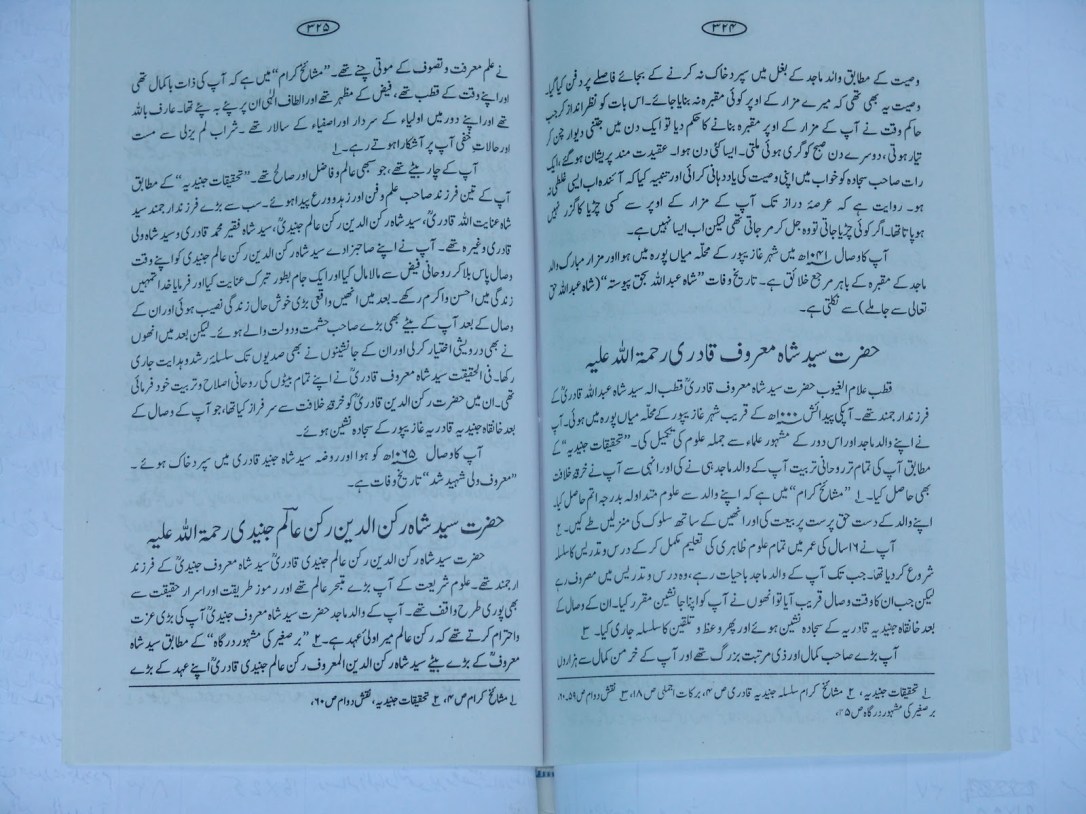 ۳۲۴
وصیت کے مطابق والد ماجد کے بغل میں سپرد خاک نہ کرنے کے بجائے فاصلے پر دفن کیا گیا۔
وصیت یہ بھی تھی کہ میرے مزار کے اوپر کوئی مقبرہ نہ بنایا جائے۔ اس بات کو نظر انداز کر جب
حاکم وقت نے آپ کے مزار کے اوپر مقبرہ بنانے کا حکم دیا تو ایک دن میں جتنی دیوار چن کر
تیار ہوتی، دوسرے دن صبح کو گری ہوئی ملتی۔ ایسا کئی دن ہوا۔ عقیدت مند پریشان ہو گئے، ایک
رات صاحب سجادہ کو خواب میں اپنی وصیت کی یاد دہانی کرائی اور تنبیہ کیا کہ آئندہ اب ایسی غلطی نہ
ہو۔ روایت ہے کہ عرصۂ دراز تک آپ کے مزار کے اوپر سے کسی چڑیا کا گزر نہیں
ہو پاتا تھا۔ اگر کوئی چڑیا جاتی تو وہ جل کر مر جاتی تھی لیکن اب ایسا نہیں ہے۔
آپ کا وصال ۱۰۴۱ھ میں شہر غازیپور کے محلّہ میاں پورہ میں ہوا اور مزار مبارک والد
ماجد کے مقبرہ کے باہر مرجع خلائق ہے۔ تاریخ وفات ”شاہ عبداللہ بحق پیوستہ“ (شاہ عبداللہ حق
تعالی سے جاملے) سے نکلتی ہے۔
حضرت سید شاہ معروف قادری رحمۃ اللہ علیہ
قطب علام الغیوب حضرت سید شاہ معروف قادریؒ قطب الہ سید شاہ عبداللہ قادریؒ کے
فرزند ارجمند تھے۔ آپکی پیدائش ۱۰۰۰ھ کے قریب شہر غازیپور کے محلّہ میاں پورہ میں ہوئی۔ آپ
نے اپنے والد ماجد اور اس دور کے مشہور علماء سے جملہ علوم کی تکمیل کی۔ ”تحقیقات جنیدیہ“ کے
مطابق آپ کی تمام تر روحانی تربیت آپ کے والد ماجد ہی نے کی اور انہی سے آپ نے خرقۂ خلافت
بھی حاصل کیا۔ ۱؎ ”مشائخ کرام“ میں ہے کہ اپنے والد سے علوم متداولہ بدرجہ اتم حاصل کیا۔
اپنے والد کے دست حق پرست پر بیعت کی اور انھیں کے ساتھ سلوک کی منزلیں طے کیں۔ ۲؎
آپ نے ۱۶ سال کی عمر میں تمام علوم ظاہری کی تعلیم مکمل کر کے درس و تدریس کا سلسلہ
شروع کر دیا تھا۔ جب تک آپ کے والد ماجد باحیات رہے، وہ درس و تدریس میں مصروف رہے
لیکن جب ان کا وقت وصال قریب آیا تو انھوں نے آپ کو اپنا جانشین مقرر کیا۔ ان کے وصال کے
بعد خانقاہ جنیدیہ قادریہ کے سجادہ نشین ہوئے اور پھر وعظ و تلقین کا سلسلہ جاری کیا۔ ۳؎
آپ بڑے صاحب کمال اور ذی مرتبت بزرگ تھے اور آپ کے خرمن کمال سے ہزاروں
۱؎ تحقیقات جنیدیہ، ۲؎ مشائخ کرام سلسلہ جنیدیہ قادری ص ۴، برکات ص ۱۸، ۳؎ نقش دوام ص ۵۹۔۶۰،
بر صغیر کی مشہور درگاہ ص ۳۵،
۳۲۵
نے علم معرفت و تصوف کے موتی چنے تھے۔ ”مشائخ کرام“ میں ہے کہ آپ کی ذات باکمال تھی
اور اپنے وقت کے قطب تھے، فیض کے مظہر تھے اور الطاف الٰہی ان پر پئے بہ پئے تھا۔ عارف باللہ
تھے اور اپنے دور میں اولیاء کے سردار اور اصفیاء کے سالار تھے۔ شراب لم یزلی سے مست
اور حالات خفی آپ پر آشکارا ہوتے رہے۔ ۱؎
آپ کے چار بیٹے تھے، جو سبھی عالم و فاضل اور صالح تھے۔ ”تحقیقات جنیدیہ“ کے مطابق
آپ کے تین فرزند صاحب علم و فن اور زہد و ورع پیدا ہوئے۔ سب سے بڑے فرزند ارجمند سید
شاہ عنایت اللہ قادریؒ، سید شاہ رکن الدین رکن عالم جنیدیؒ، سید شاہ فقیر محمد قادری و سید شاہ ولی
قادری وغیرہ تھے۔ آپ نے اپنے صاحبزادے سید شاہ رکن الدین رکن عالم جنیدی کو اپنے وقت
وصال پاس بلا کر روحانی فیض سے مالا مال کیا اور ایک جام بطور تبرک عنایت کیا اور فرمایا خدا تمہیں
زندگی میں احسن و اکرم رکھے۔ بعد میں انھیں واقعی بڑی خوش حال زندگی نصیب ہوئی اور ان کے
وصال کے بعد آپ کے بیٹے بھی بڑے صاحب حشمت و دولت والے ہوئے۔ لیکن بعد میں انھوں
نے بھی درویشی اختیار کر لی اور ان کے جانشینوں نے بھی صدیوں تک سلسلہ رشد و ہدایت جاری
رکھا۔ فی الحقیقت سید شاہ معروف قادریؒ نے اپنے تمام بیٹوں کی روحانی اصلاح و تربیت خود فرمائی
تھی۔ ان میں حضرت رکن الدین قادریؒ کو خرقۂ خلافت سے سرفراز کیا تھا، جو آپ کے وصال کے
بعد خانقاہ جنیدیہ قادریہ غازیپور کے سجادہ نشین ہوئے۔
آپ کا وصال ۱۰۶۵ھ کو ہوا اور روضہ سید شاہ جنید قادری میں سپرد خاک ہوئے۔
”معروف ولی شہید شد“ تاریخ وفات ہے۔
حضرت سید شاہ رکن الدین رکن عالم جنیدی رحمۃ اللہ علیہ
حضرت سید شاہ رکن الدین رکن عالم جنیدی قادریؒ سید شاہ معروف جنیدیؒ کے فرزند
ارجمند تھے۔ علوم شریعت کے آپ بڑے متبحر عالم تھے اور رموز طریقت اور اسرار حقیقت سے
بھی پوری طرح واقف تھے۔ آپ کے والد ماجد حضرت سید شاہ معروف جنیدیؒ آپ کی بڑی عزت
واحترام کرتے تھے کہ رکن عالم میرا ولی عہد ہے۔ ۲؎ ”بر صغیر کی مشہور درگاہ“ کے مطابق سید شاہ
معروفؒ کے بڑے بیٹے سید شاہ رکن الدین المعروف رکن عالم جنیدی قادریؒ اپنے عہد کے بڑے
۱؎ مشائخ کرام ص ۴، ۲؎ تحقیقات جنیدیہ، نقش دوام ص ۶۰،